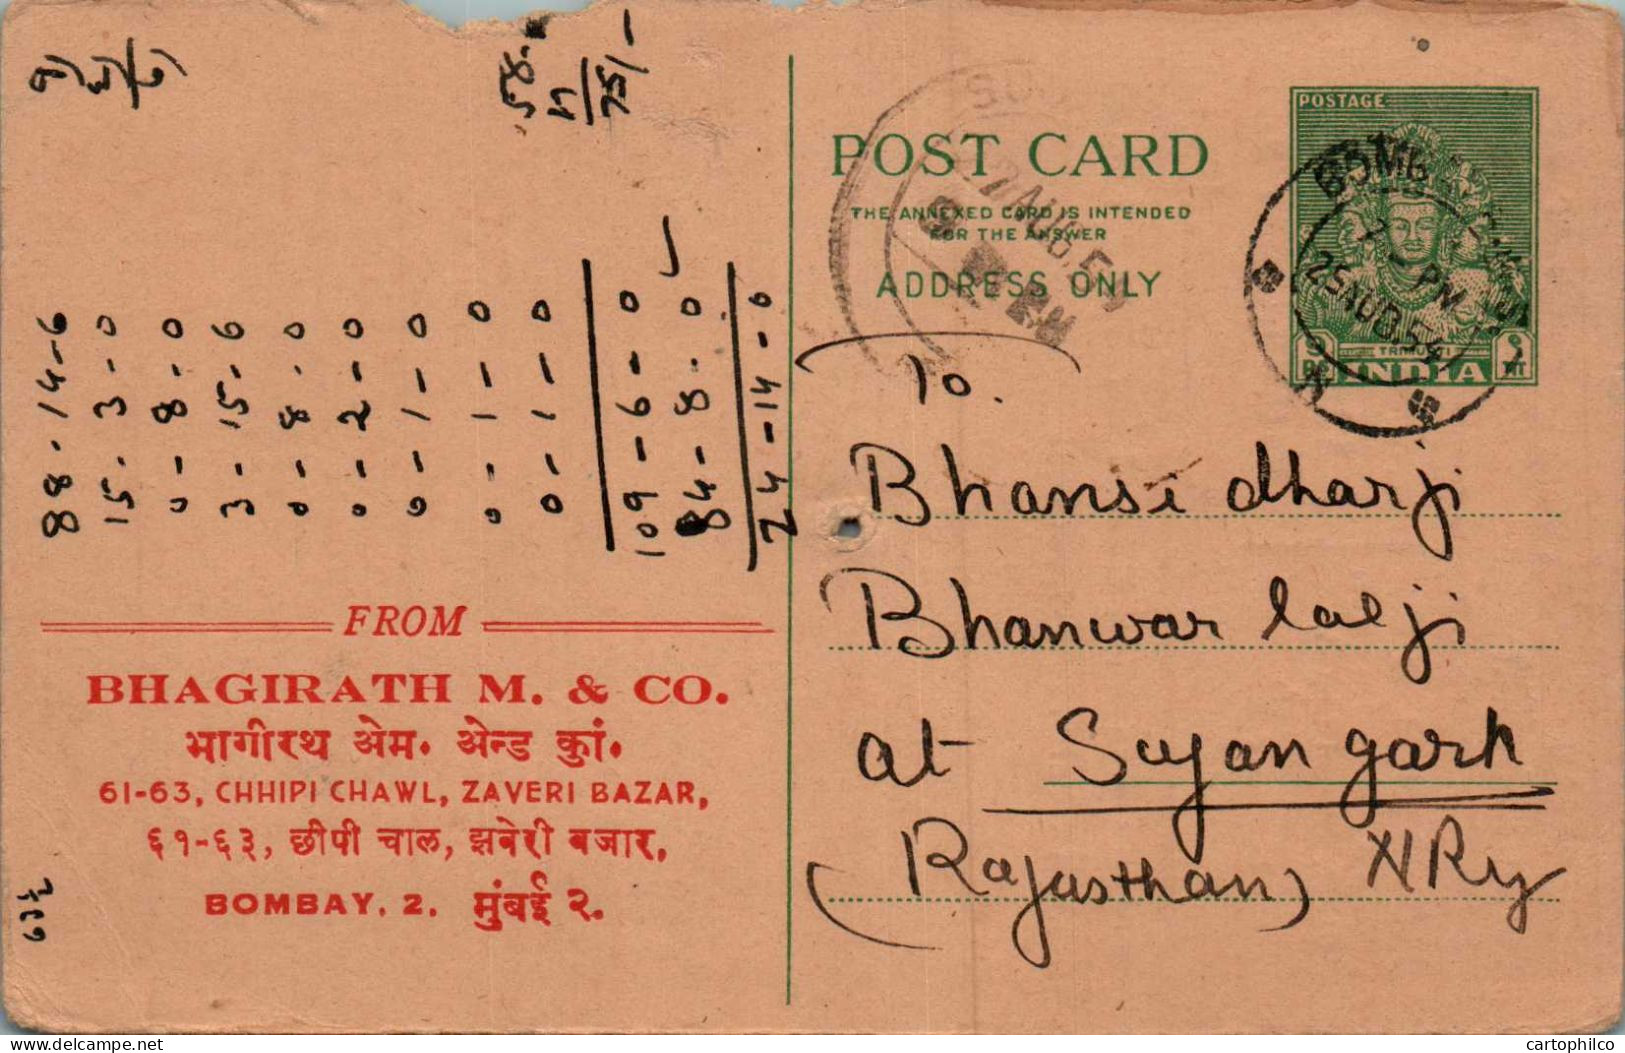 POST CARD
THE ANNEXED CARD IS INTENDED
FOR THE ANSWER
ADDRESS ONLY
POSTAGE
TRIMURTI
INDIA
7 - PM
25 AUG.54
To.
Bhansi dharji
Bhanwar lal ji
at Sujan garh
(Rajasthan) N Ry
88-14-6
15-3-0
0-8-0
3-15-6
0-8-0
0-2-0
0-1-0
0-1-0
0-1-0
109-6-0
84-8-0
24-14-0
75/-
FROM
BHAGIRATH M. & CO.
भागीरथ अेम. अेन्ड कुां.
61-63, CHHIPI CHAWL, ZAVERI BAZAR,
६१-६३, छीपी चाल, झवेरी बजार,
BOMBAY. 2. मुंबई २.
cartophilco